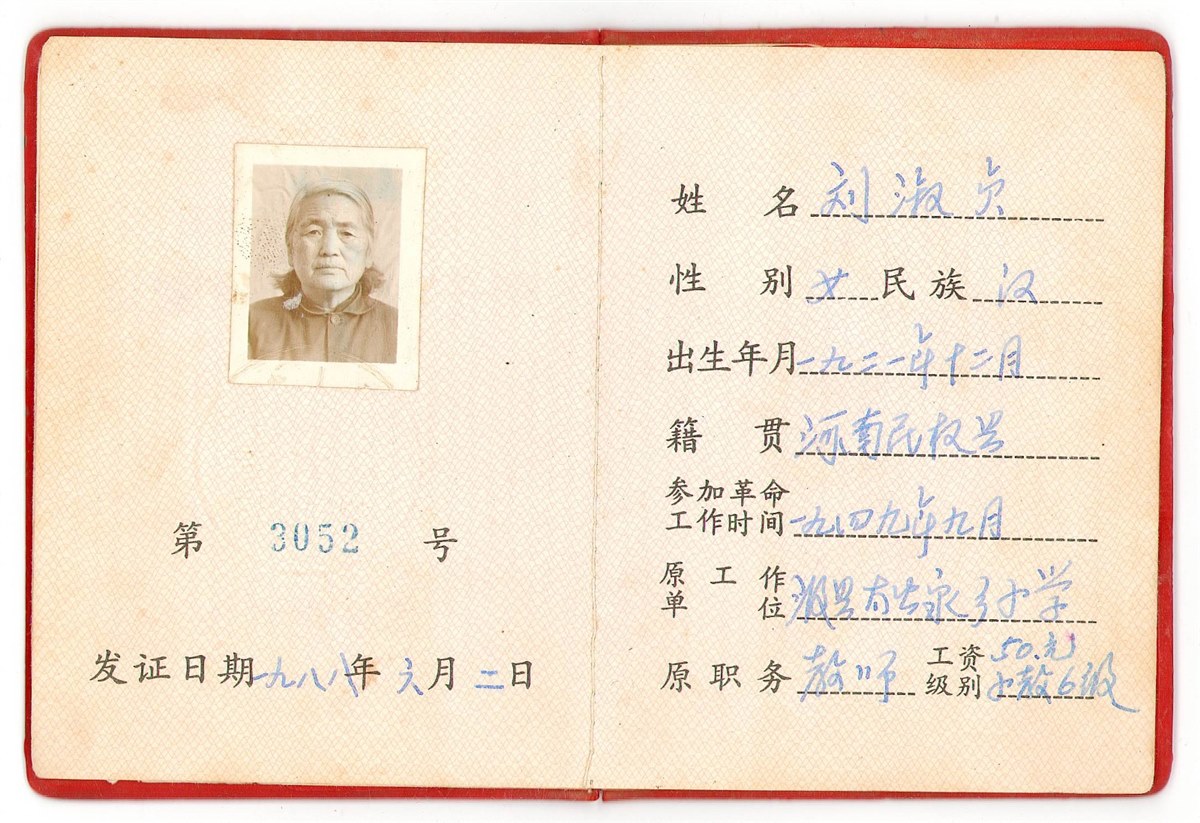 第 3052 号
发证日期 一九八八年 六月 二日
姓名 刘淑贞
性别 女 民族 汉
出生年月 一九二一年十二月
籍贯 河南民权县
参加革命工作时间 一九四九年九月
原工作单位 县 小学
原职务 教师 工资级别 50.元 小教6级